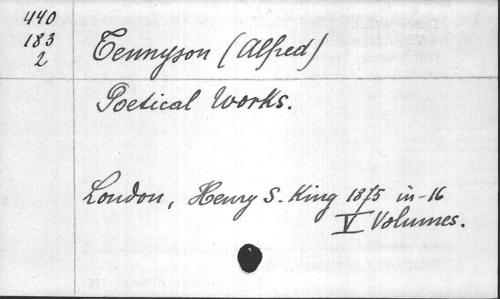 440
183
2
Tennyson (Alfred)
Poetical Works.
London, Henry S. King 1875 in-16
V Volumes.